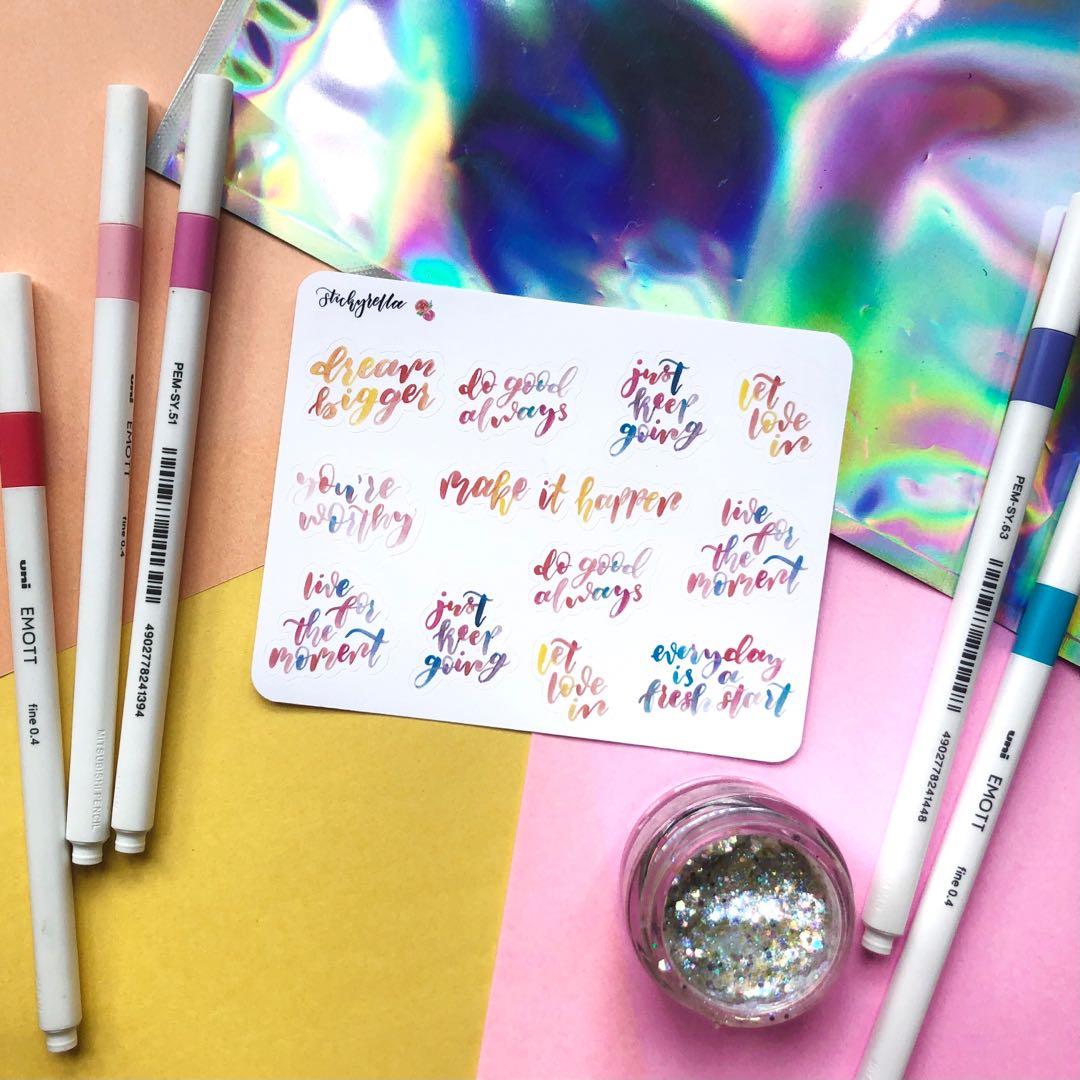 stickyrella
dream
bigger
do good
always
just
keep
going
let
love
in
you're
worthy
make it happen
live
for
the
moment
do good
always
live
for
the
moment
just
keep
going
let
love
in
everyday
is a
fresh start
uni EMOTT fine 0.4
EMOTT fine 0.4
MITSUBISHI PENCIL
PEM-SY.51
4902778241394
PEM-SY.63
4902778241448
uni EMOTT fine 0.4